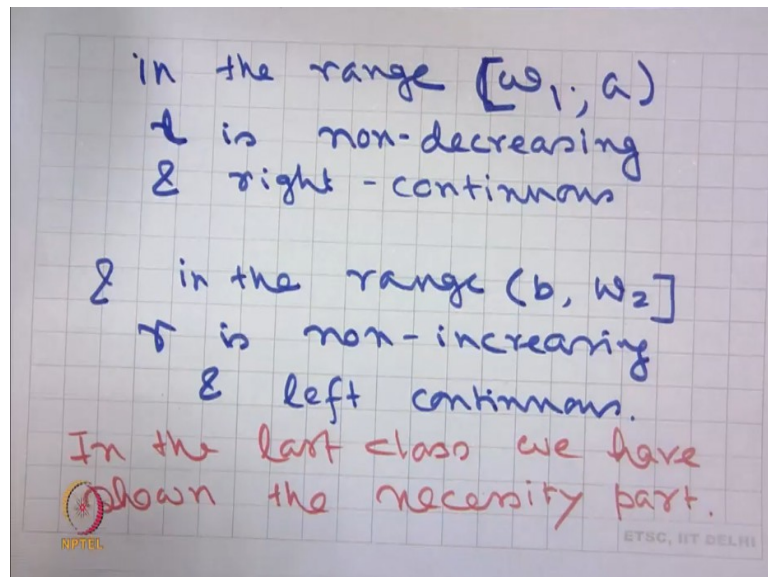 in the range [ω₁, a)
l is non-decreasing
& right-continuous
& in the range (b, ω₂]
r is non-increasing
& left continuous.
In the last class we have
shown the necessity part.
NPTEL
ETSC, IIT DELHI